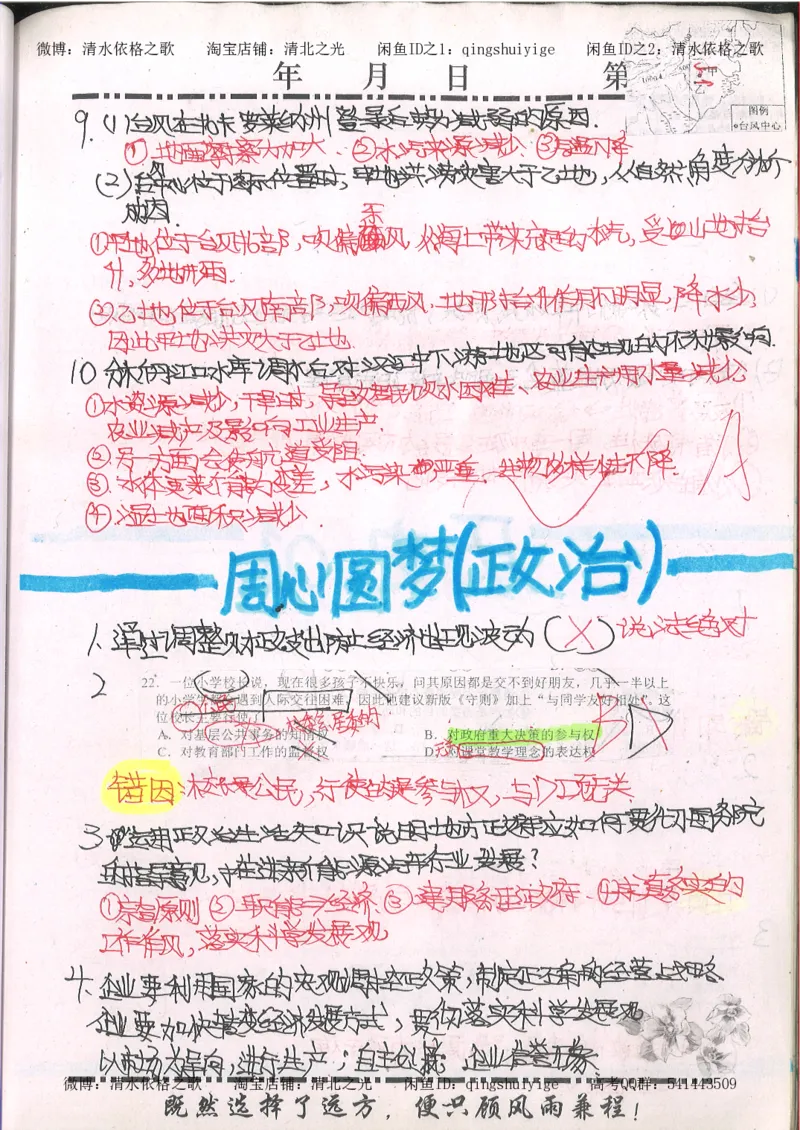 微博：清水依格之歌 淘宝店铺：清北之光 闲鱼ID之1：qingshuiyige 闲鱼ID之2：清水依格之歌
年 月 日 第
图例
台风中心
甲
乙
9.(1)台风在北卡罗莱纳州登录后势力减弱的原因.
①地面摩擦力加大 ②水汽来源减少 ③气温下降
(2)台风中心位于图示位置时，甲地洪涝灾害大于乙地，从自然角度分析
原因.
①甲地位于台风北部，吹偏东风，从海上带来充足的水汽，受山地抬
升，多地形雨.
②乙地位于台风南部，吹偏西风.地形抬升作用不明显，降水少，
因此甲地洪灾大于乙地.
10 分析丹江口水库调水后，对汉江中下游地区可能产生的不利影响.
①水资源减少，干旱时，导致居民饮水困难、农业生产用水量减少
农业减产及影响工业生产.
②另一方面会使航运受阻.
③水体更新能力变差，水污染严重.生物多样性下降.
④湿地面积减少.
A
周心圆梦(政治)
1、通过调整财政支出防止经济出现波动(×)说法绝对
2
22．一位小学校长说，现在很多孩子不快乐，问其原因都是交不到好朋友，几乎一半以上
的小学生都有遇到人际交往困难，因此他建议新版《守则》加上“与同学友好相处”。这
位校长主要行使
A．对基层公共事务的知情权 B．对政府重大决策的参与权
C．对教育部门工作的监督权 D．对课堂教学理念的表达权
错因：校长是公民，行使的是参与权，与D项无关
3 运用政治生活知识说明地方政府应如何贯彻国务院
的指导意见，推进新能源汽车行业发展？
①宗旨原则 ②职能→经济 ③建服务型政府 ④求真务实的
工作作风，落实科学发展观
4、企业要利用国家的宏观调控政策，制定正确的经营战略
企业要加快转变经济发展方式，贯彻落实科学发展观
以市场为导向，进行生产；自主创新；企业信誉形象、
微博：清水依格之歌 淘宝店铺：清北之光 闲鱼ID：qingshuiyige 高考QQ群：541443509
既然选择了远方，便只顾风雨兼程！